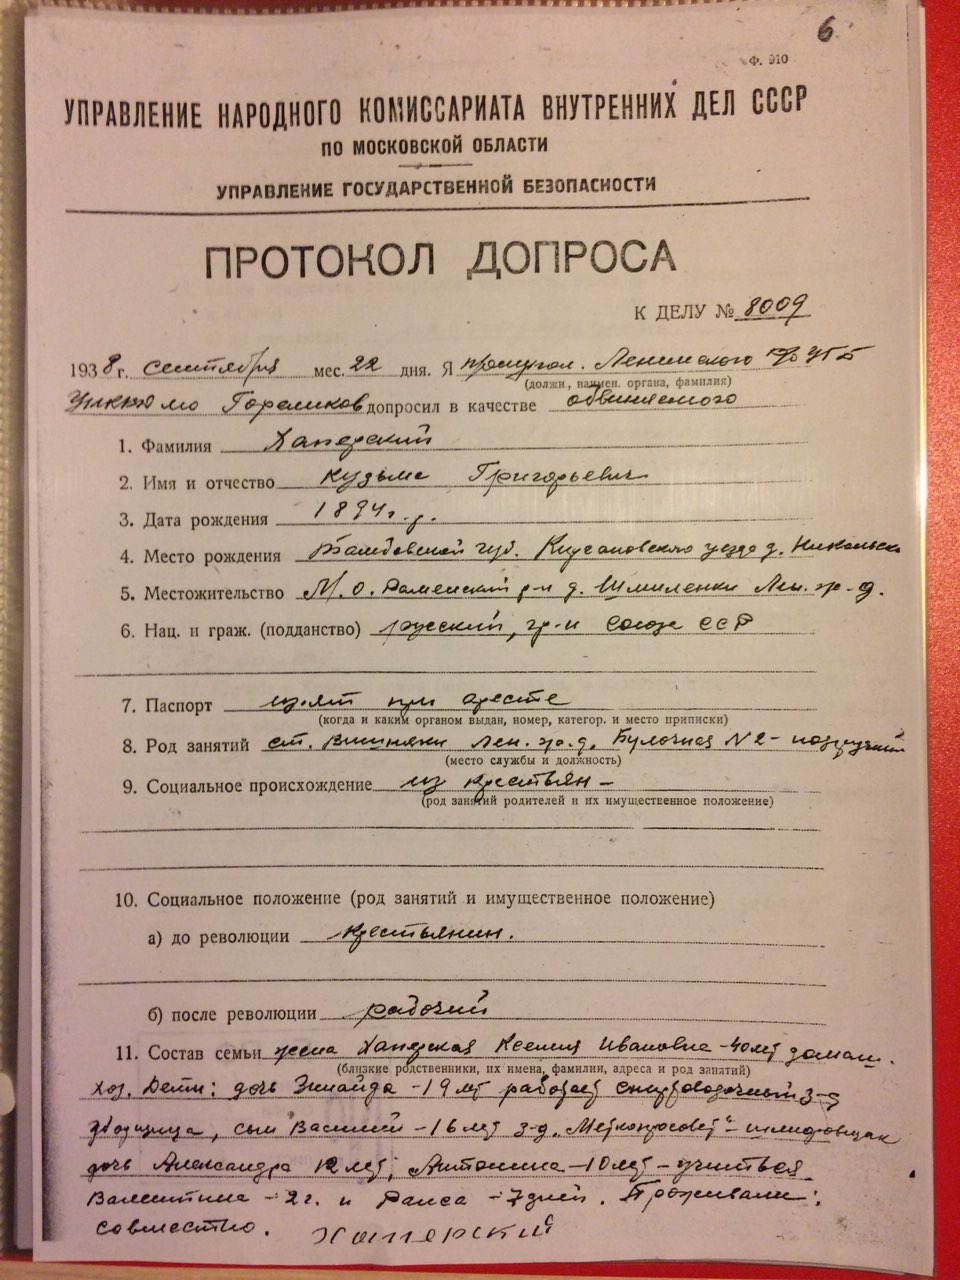 6
Ф. 910
УПРАВЛЕНИЕ НАРОДНОГО КОМИССАРИАТА ВНУТРЕННИХ ДЕЛ СССР
ПО МОСКОВСКОЙ ОБЛАСТИ
УПРАВЛЕНИЕ ГОСУДАРСТВЕННОЙ БЕЗОПАСНОСТИ
ПРОТОКОЛ ДОПРОСА
К ДЕЛУ № 8009
1938 г. сентября мес. 22 дня. Я Ленинского
(должн., наимен. органа, фамилия)
Гореликов допросил в качестве обвиняемого
1. Фамилия Хаперский
2. Имя и отчество Кузьма Григорьевич
3. Дата рождения 1894 г. р.
4. Место рождения Тамбовской губ. Кирсановского уезда д. Никольск
5. Местожительство М. О. Раменский р-н д. Шмиленки Лен. ж. д.
6. Нац. и граж. (подданство) русский, гр-н Союза ССР
7. Паспорт изъят при аресте
(когда и каким органом выдан, номер, категор. и место приписки)
8. Род занятий ст. Вишняки Лен. ж. д. Булочная N 2 -
(место службы и должность)
9. Социальное происхождение из крестьян -
(род занятий родителей и их имущественное положение)
10. Социальное положение (род занятий и имущественное положение)
а) до революции крестьянин.
б) после революции рабочий
11. Состав семьи жена Хаперская Ксения Ивановна - 40 лет домаш.
(близкие родственники, их имена, фамилии, адреса и род занятий)
хоз. Дети: дочь Зинаида - 19 лет работает спиртоводочный з-д
сын Василий - 16 лет з-д шлифовщик
дочь Александра 12 лет, Антонина - 10 лет - учиться
Валентина - 2 г. и Раиса - 7 дней. Проживали:
совместно. Хаперский